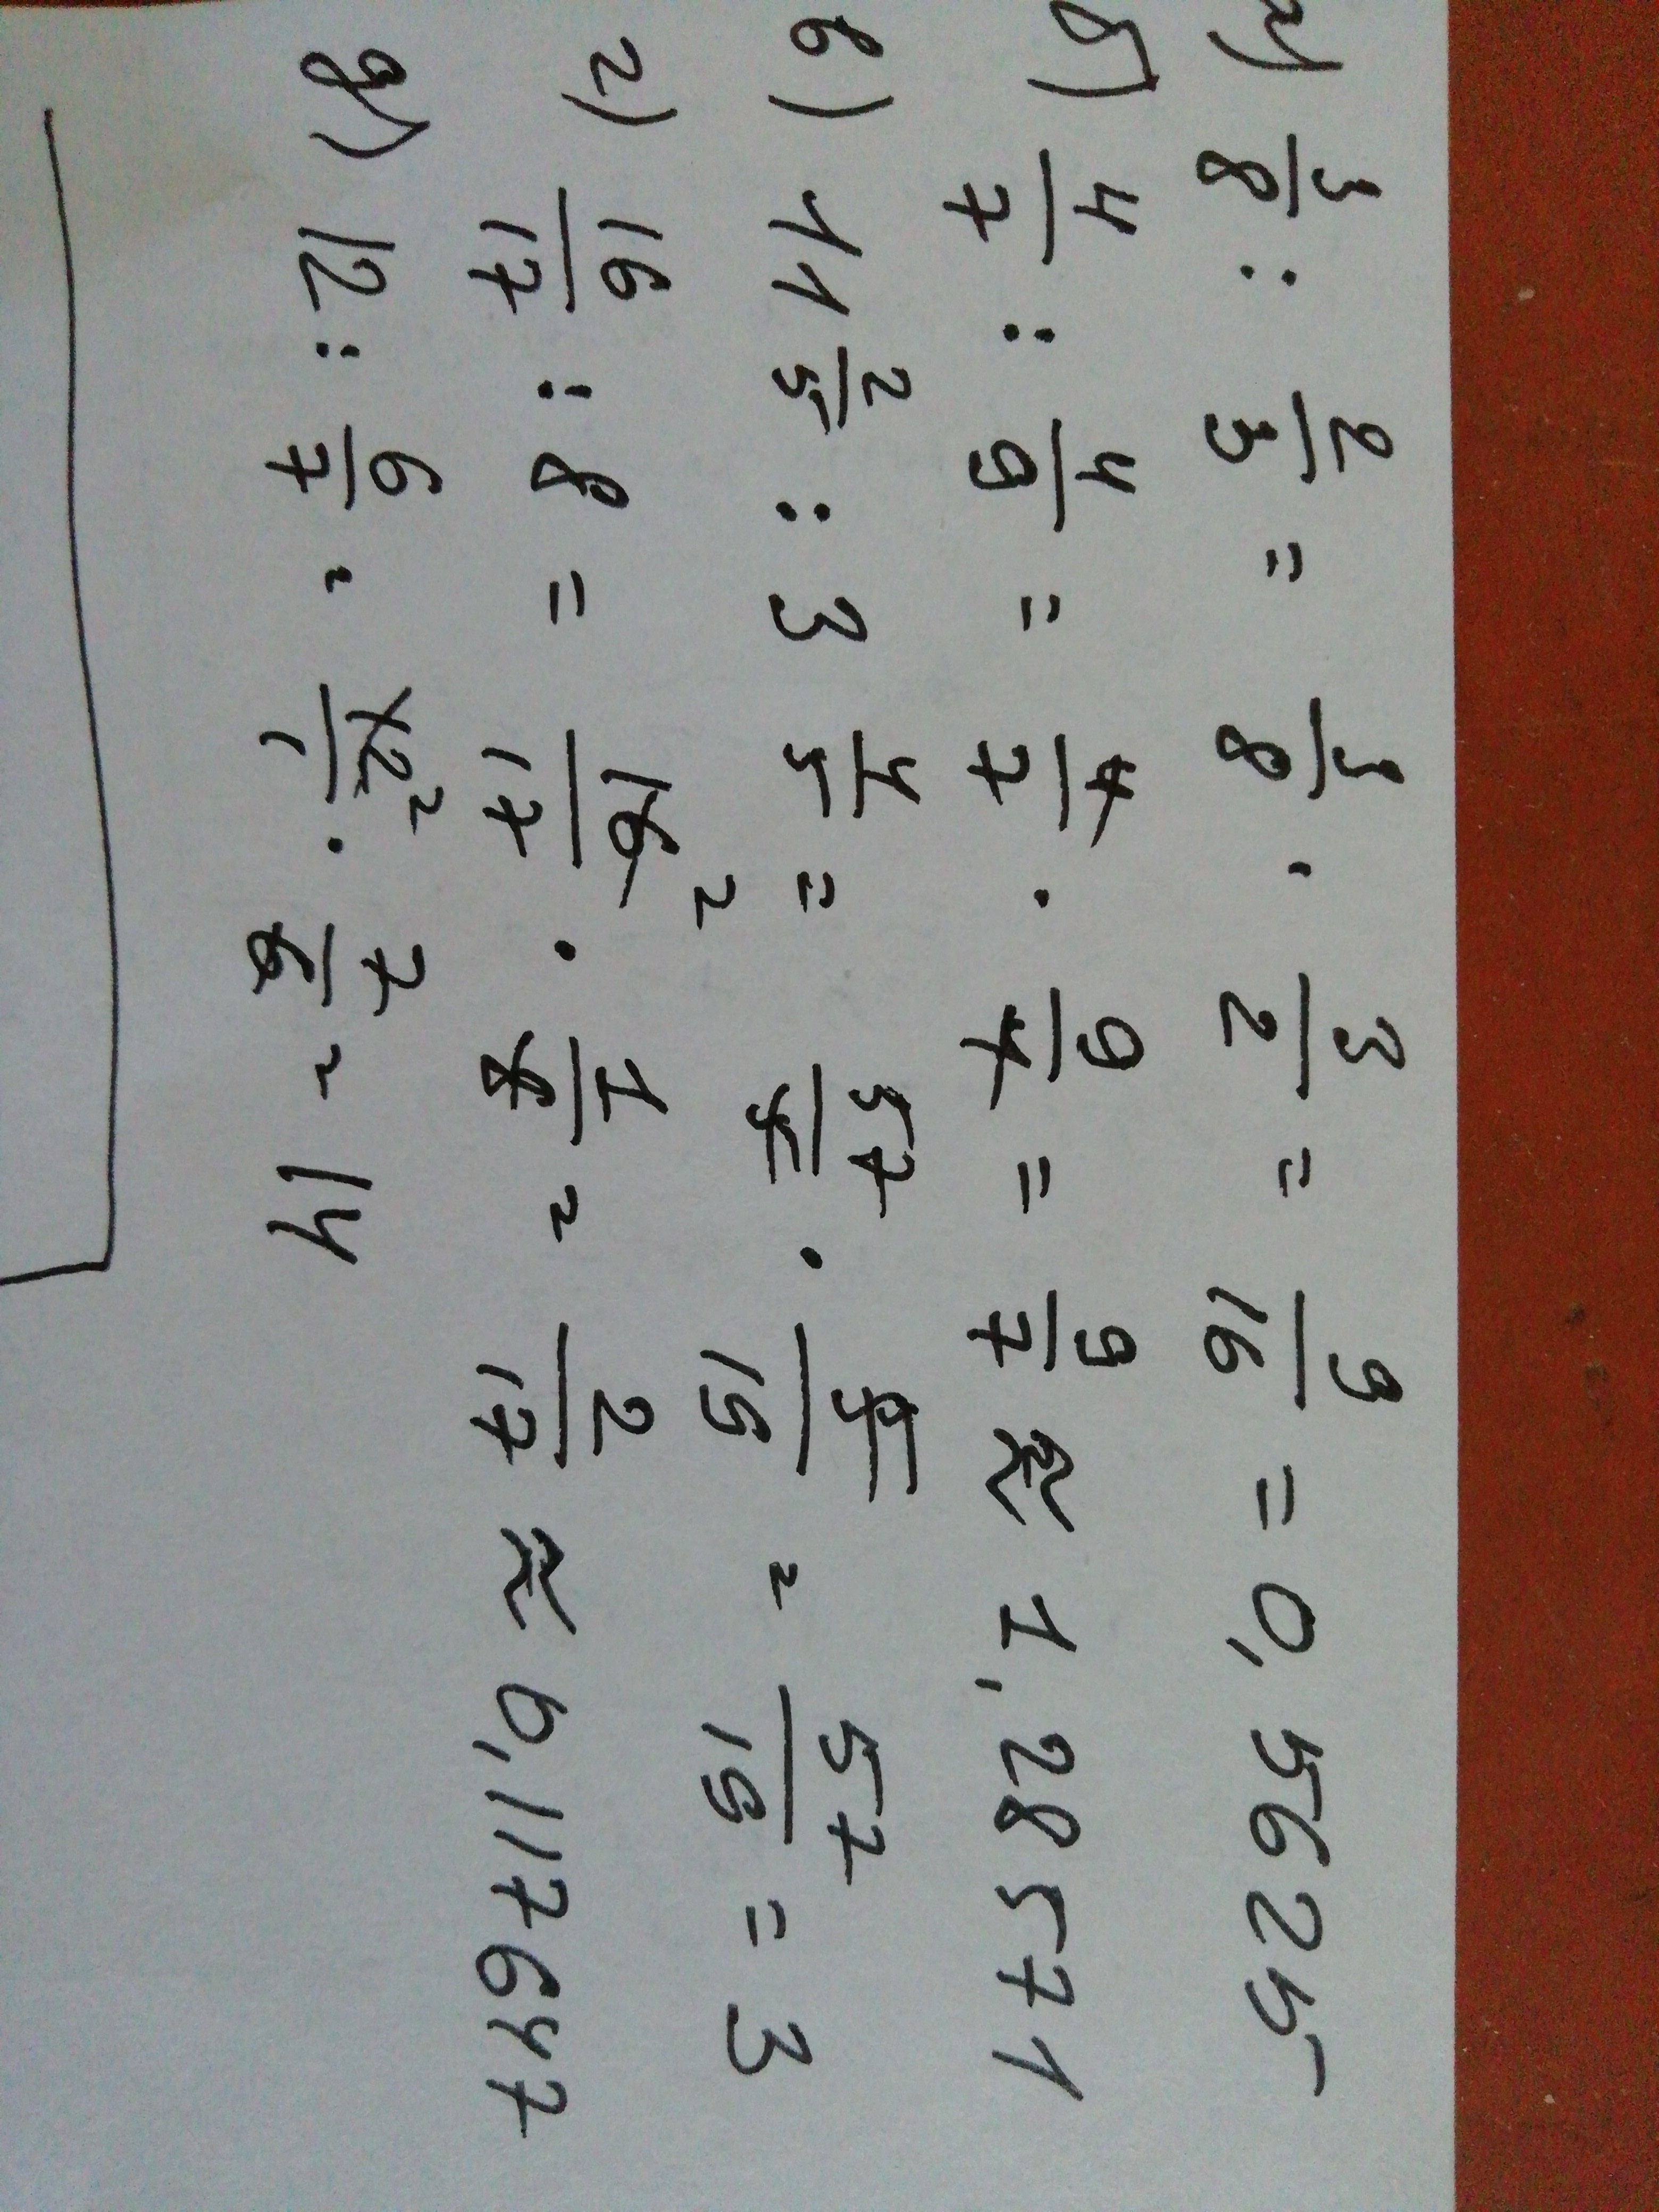 а) 3/8 : 2/3 = 3/8 · 3/2 = 9/16 = 0,5625
б) 4/7 : 4/9 = 4/7 · 9/4 = 9/7 ≈ 1,28571
в) 11 2/5 : 3 4/5 = 57/5 · 5/19 = 57/19 = 3
г) 16/17 : 8 = 16/17 2 · 1/8 = 2/17 ≈ 0,117647
д) 12 : 6/7 = 12/1 2 · 7/6 = 14